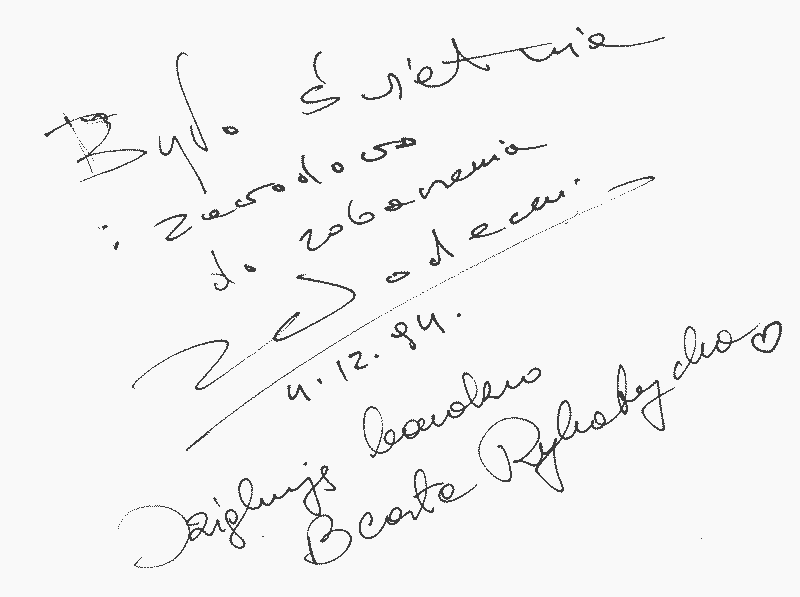 Było świetnie
i zawodowo
do zobaczenia
4.12.94.
Dziękuję bardzo
Beata Rybotycka